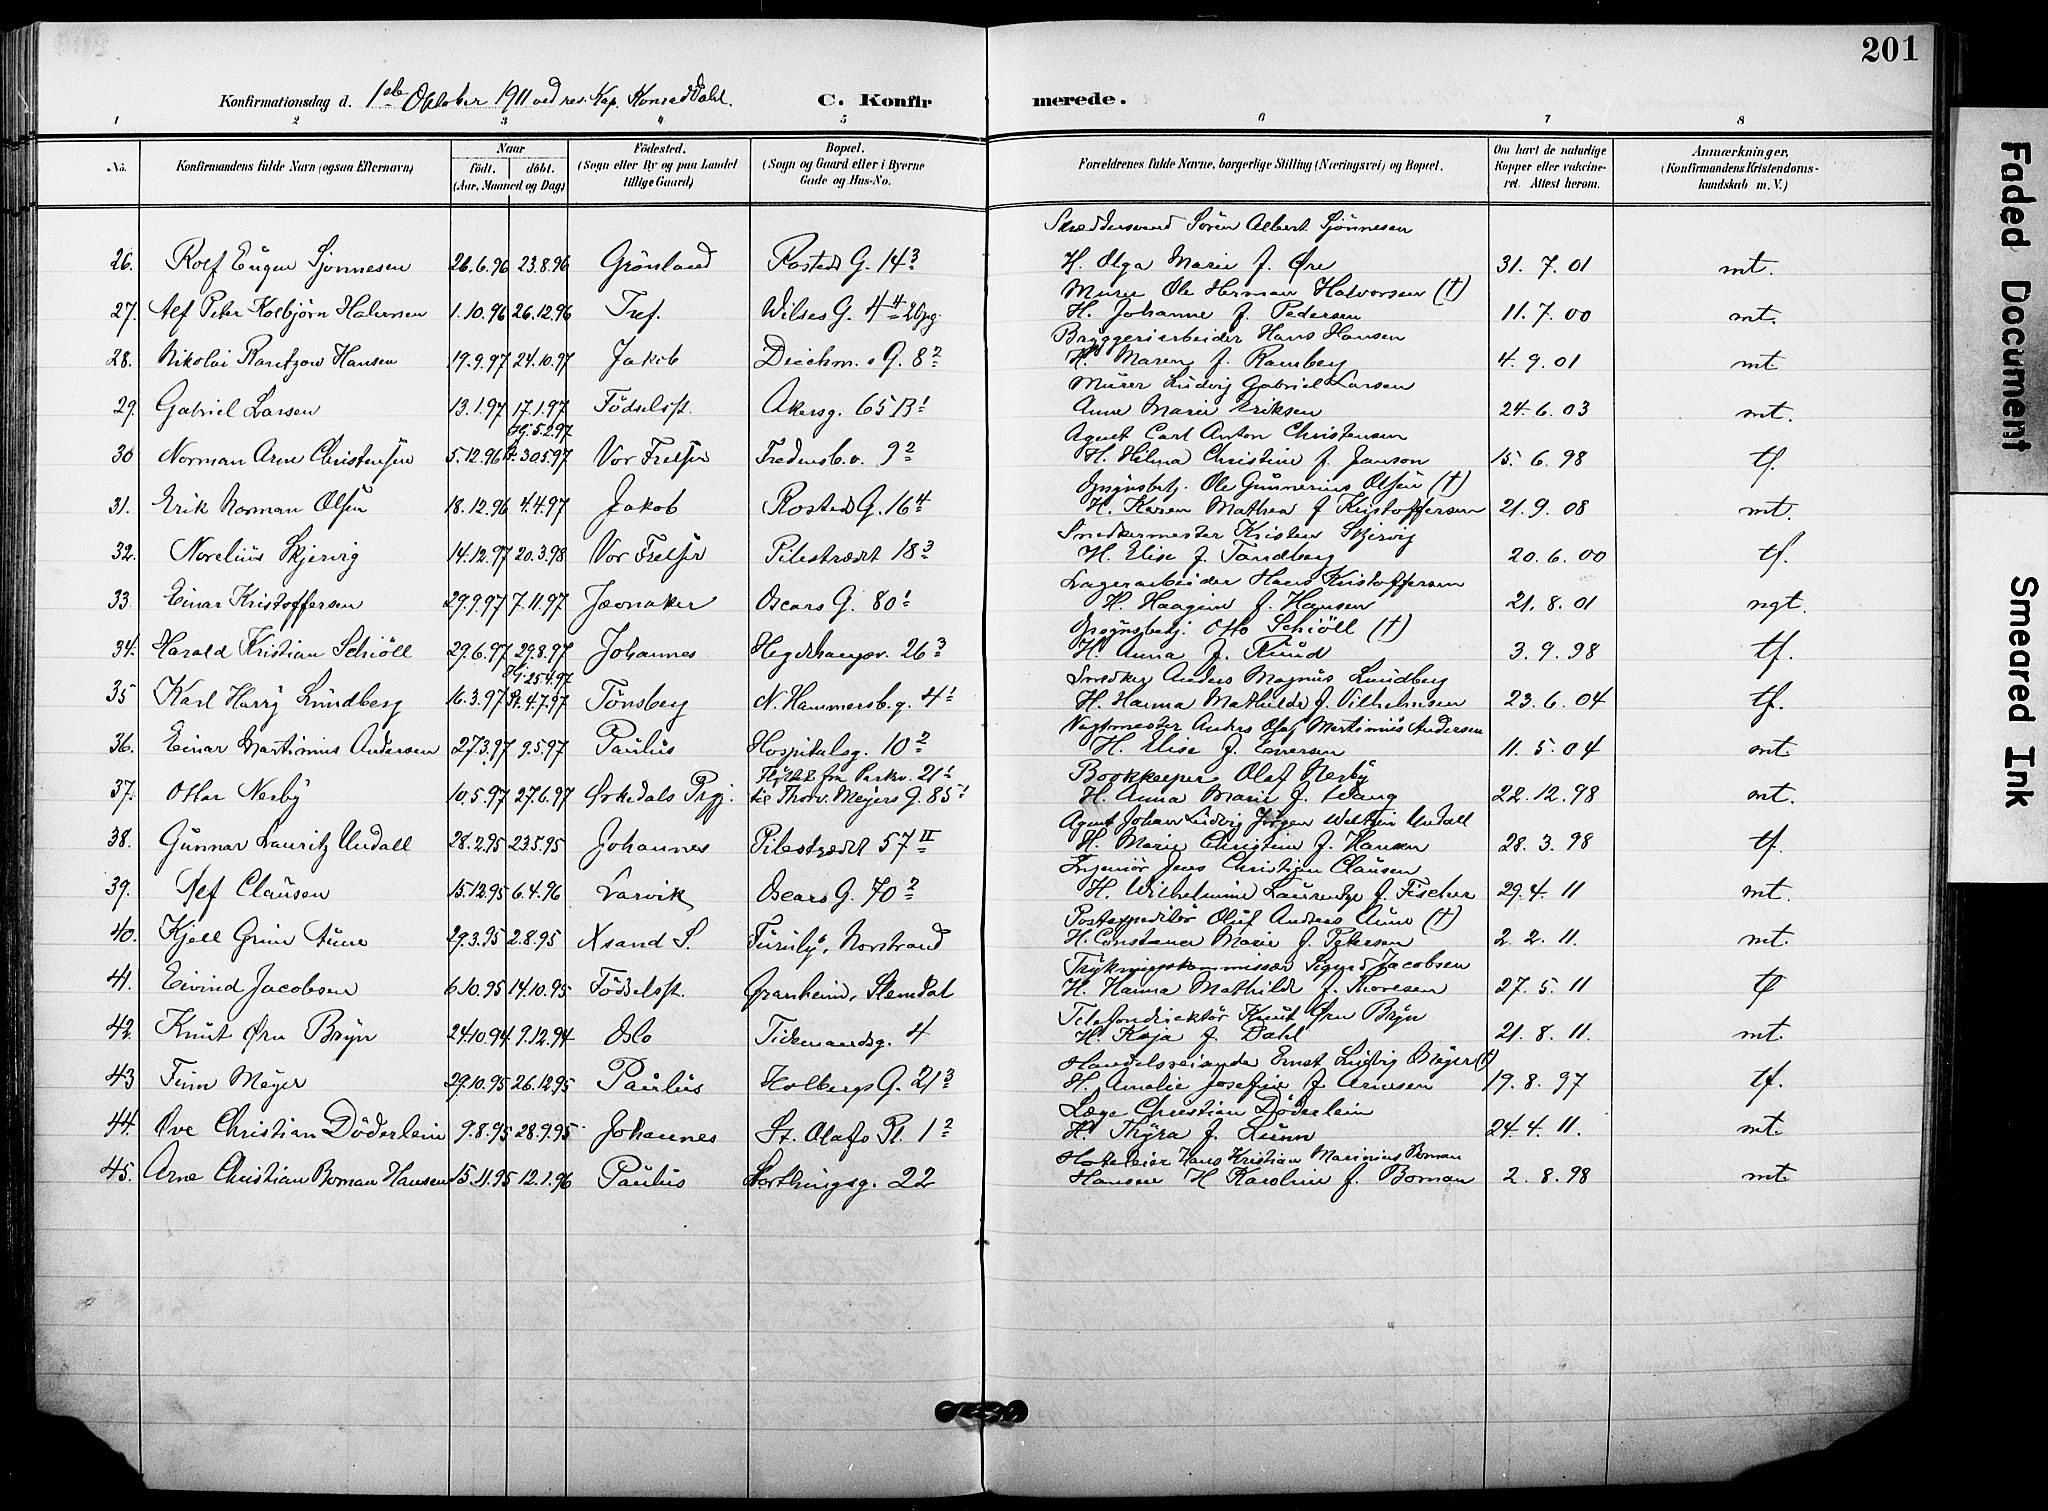 201
Konfirmationsdag d. 1ste Oktober 1911 ved res. Kap. Konrad Dahl. C. Konfirmerede.
1 2 3 4 5 6 7 8
No. Konfirmandens fulde Navn (ogsaa Efternavn) Naar født. døbt. (Aar, Maaned og Dag) Fødested. (Sogn eller By og paa Landet tillige Gaard.) Bopæl. (Sogn og Gaard eller i Byerne Gade og Hus-No. Forældrenes fulde Navne, borgerlige Stilling (Næringsvei) og Bopæl. Om havt de naturlige Kopper eller vakcineret. Attest herom. Anmærkninger, (Konfirmandens Kristendomskundskab m. V.)
Skræddersvend Sören Albert Sjönnesen
26. Rolf Eugen Sjönnesen 26.6.96 23.8.96 Grönland Rosteds G. 14 3 H. Olga Marie f. Øre 31. 7. 01 mt.
Murer Ole Herman Halvorsen (†)
27. Alf Peter Kolbjörn Halvorsen 1.10.96 26.12.96 Tref. Wilses G. 4 4 H. Johanne f. Pedersen 11. 7. 00 mt.
Bryggeriarbeider Hans Hansen
28. Nikolai Rantzow Hansen 19.9.97 24.10.97 Jakob Diechm.s G. 8 2 H. Maren f. Ramberg 4. 9. 01 mt
Murer Ludvig Gabriel Larsen
29. Gabriel Larsen 13.1.97 17.1.97 Födselsst. Akersg. 65 B 1 Anne Marie Eriksen 24. 6. 03 mt.
Hj: 5.2.97 Agent Carl Anton Christensen
30 Norman Arne Christensen 5.12.96 30.5.97 Vor Frelser Fredensb.v. 9 2 H. Hilma Christine f. Janson 15. 6. 98 tf.
Gsgnsbetj. Ole Gunnerius Olsen (†)
31. Erik Norman Olsen 18.12.96 4.4.97 Jakob Rosteds G. 16 4 H. Karen Mathea f Kristoffersen 21. 9. 08 mt.
Snedkermester Kristen Skjervig
32. Norelius Skjervig 14.12.97 20.3.98 Vor Frelser Pilestrædet 18 3 H. Elise f. Tandberg 20. 6. 00 tf.
Lagerarbeider Hans Kristoffersen
33 Einar Kristoffersen 29.9.97 7.11.97 Jævnaker Oscars G. 80 1 H. Haagine f. Hansen 21. 8. 01 ngt.
Gsgnsbetj. Otto Schiöll (†)
34. Harald Kristian Schiöll 29.6.97 29.8.97 Johannes Hegdehaugsv. 26 3 H. Anna f. Ruud 3. 9. 98 tf.
Hj: 25.4.97 Snedker Anders Magnus Lundberg
35 Karl Harry Lundberg 16.3.97 St. 4.7.97 Tönsberg N. Hammersb.g. 4 1 H. Hanna Mathilde f. Vilhelmsen 23. 6. 04 tf.
Vagtmester Anders Olaf Martinius Andersen
36. Einar Martinius Andersen 27.3.97 9.5.97 Paulus Hospitalsg. 10 2 H. Elise f. Eversen 11. 5. 04 mt.
Flyttet fra Parkv. 21 1 Bookkeeper Olaf Nerby
37. Ottar Nerby 10.5.97 27.6.97 Örkedals Prgj. til Thorv. Meyers G. 85 1 H. Anna Marie f. Wang 22. 12. 98 mt.
Agent Johan Ludvig Jörgen Undall
38. Gunnar Lauritz Undall 28.2.95 23.5.95 Johannes Pilestrædet 57 II H. Marie Christine f. Hansen 28. 3. 98 tf.
Ingeniør Jens Christian Clausen
39. Alf Clausen 15.12.95 6.4.96 Larvik Oscars G. 70 2 H. Wilhelmine Laurentze f. Fischer 29. 4. 11 mt.
Postexpeditör Oluf Andreas Aune (†)
40. Kjell Grim Aune 29.3.95 2.8.95 Xsand S. Furuly, Norstrand H. Constance Marie f. Petersen 2. 2. 11. mt.
Trykningskommissær Sigurd Jacobsen
41. Eivind Jacobsen 6.10.95 14.10.95 Födselsst. Granheim, Slemdal H. Hanna Mathilde f. Thoresen 27. 5. 11 tf
Telefondirektör Knut Ørn Bryn
42. Knut Ørn Bryn 24.10.94 9.12.94 Oslo Tidemandsg. 4 H. Kaja f. Dahl 21. 8. 11. mt.
Handelsreisende Ernst Ludvig Meyer (†)
43 Finn Meyer 29.10.95 26.12.95 Paulus Holbergs G. 21 3 H. Amalie Josefine f. Arnesen 19. 8. 97 tf.
Læge Christian Döderlein
44. Ove Christian Döderlein 9.8.95 28.9.95. Johannes St. Olafs Pl. 1 2 H. Thyra f. Lunn 24. 4. 11. mt.
Hoteleier Hans Kristian Marinius Boman
45. Arne Christian Boman Hansen 15.11.95 12.1.96 Paulus Storthingsg. 22 Hansen H Karoline f. Boman 2. 8. 98 mt.
Faded Document
Smeared Ink